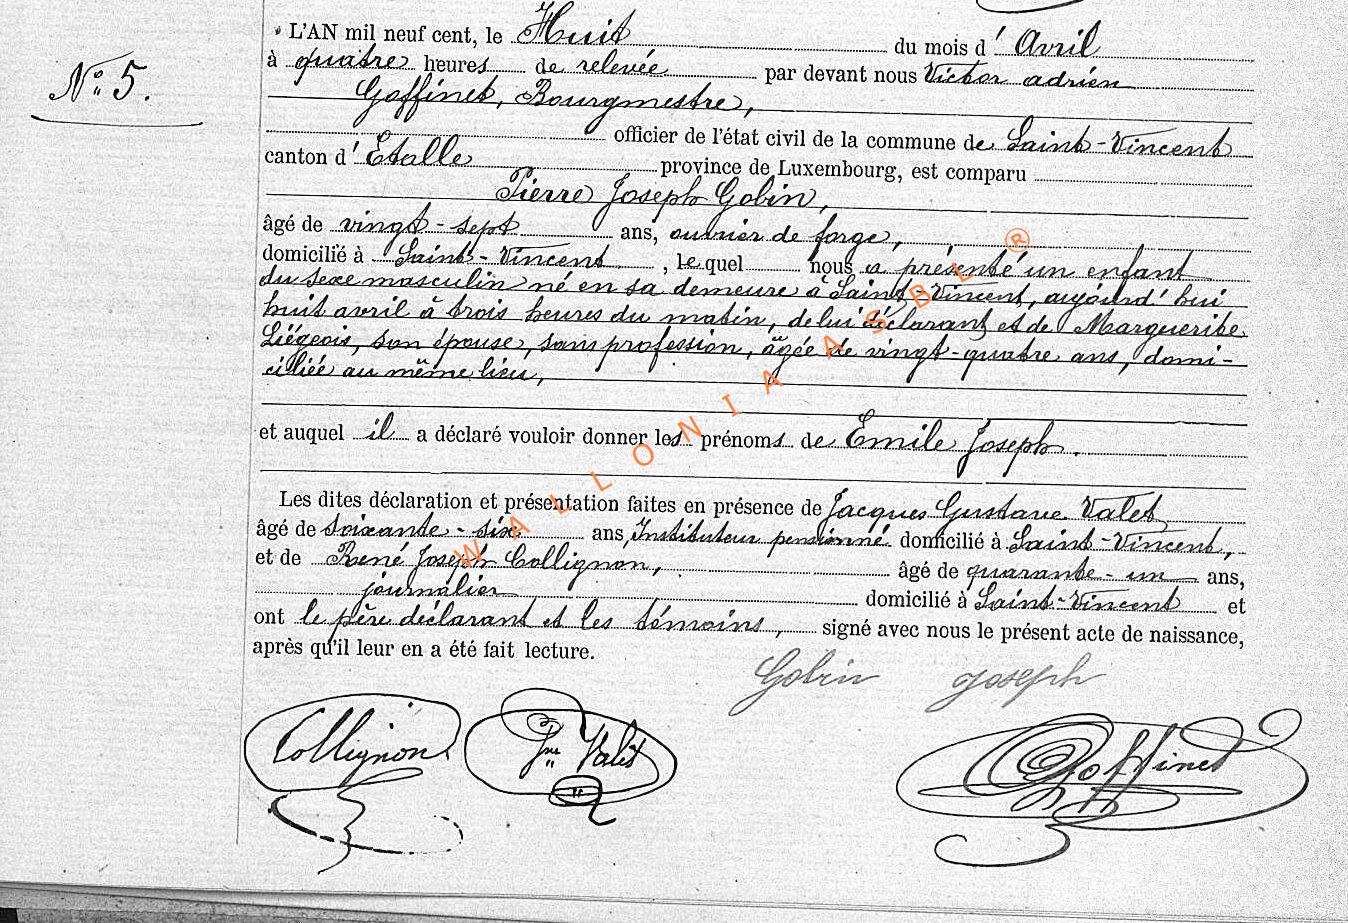 L'AN mil neuf cent, le Huit du mois d' Avril
N° 5.
à quatre heures de relevée par devant nous Victor adrien
Goffinet, Bourgmestre,
officier de l'état civil de la commune de Saint-Vincent
canton d' Etalle province de Luxembourg, est comparu
Pierre Joseph Gobin,
âgé de vingt-sept ans, ouvrier de forge,
domicilié à Saint-Vincent, lequel nous a présenté un enfant
du sexe masculin né en sa demeure à Saint-Vincent, aujourd'hui
huit avril à trois heures du matin, de lui déclarant et de Marguerite
Liégeois, son épouse, sans profession, âgée de vingt-quatre ans, domi-
ciliée au même lieu,
et auquel il a déclaré vouloir donner les prénoms de Emile Joseph.
Les dites déclaration et présentation faites en présence de Jacques Gustave Valet
âgé de soixante-six ans, Instituteur pensionné domicilié à Saint-Vincent,
et de René Joseph Collignon, âgé de quarante-un ans,
journalier domicilié à Saint-Vincent et
ont le père déclarant et les témoins, signé avec nous le présent acte de naissance,
après qu'il leur en a été fait lecture.
Gobin Joseph
Collignon Valet Goffinet
WALLONIA ASBL ®